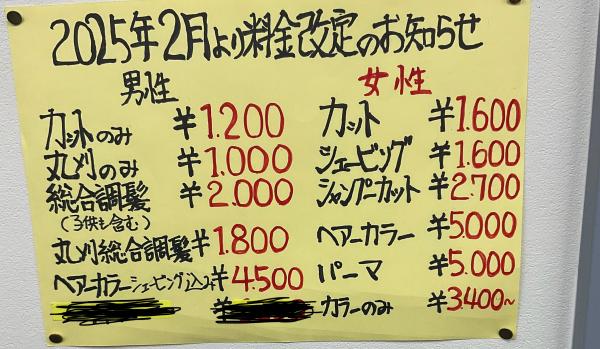 2025年2月より料金改定のお知らせ
男性
カットのみ ¥1.200
丸刈のみ ¥1.000
総合調髪 ¥2.000
(子供も含む)
丸刈総合調髪 ¥1.800
ヘアーカラーシェービング込み ¥4.500
¥
女性
カット ¥1.600
シェービング ¥1.600
シャンプーカット ¥2.700
ヘアーカラー ¥5.000
パーマ ¥5.000
カラーのみ ¥3.400~